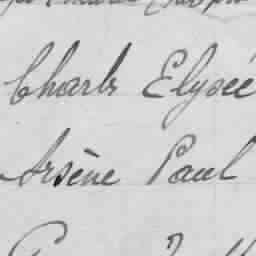 Charles Elysée
Arsène Paul